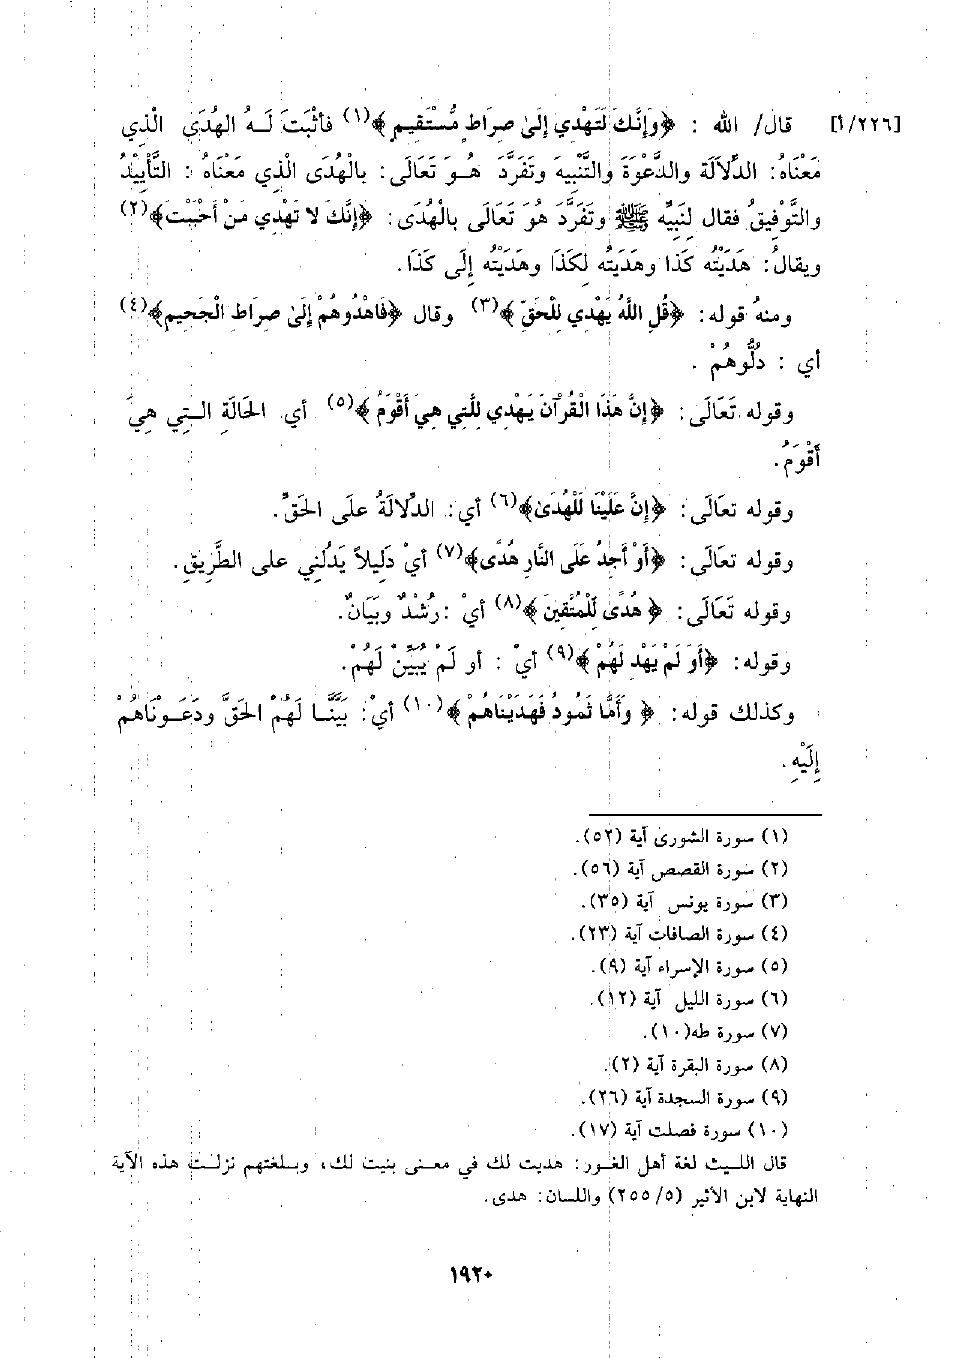 [٢٢٦/أ] قال/ الله : ﴿وَإِنَّكَ لَتَهْدِي إِلَىٰ صِرَاطٍ مُّسْتَقِيمٍ﴾(١) فأثْبَتَ لَـهُ الهُدَى الَّذِي
مَعْنَاهُ: الدِّلاَلَة والدَّعْوَةَ والتَّنْبِيه وتَفَرَّدَ هُـوَ تَعَالَى: بالْهُدَى الَّذِي مَعْنَاهُ : التَّأْيِيْدُ
والتَّوْفِيقُ فقال لِنَبِيِّه ﷺ وتَفَرَّدَ هُوَ تَعَالَى بالْهُدَى: ﴿إِنَّكَ لا تَهْدِي مَنْ أَحْبَبْتَ﴾(٢)
ويقالُ: هَدَيْتُه كَذَا وهَدَيْتُه لِكَذَا وهَدَيْتُه إِلَى كَذَا.
ومنهُ قوله: ﴿قُلِ اللَّهُ يَهْدِي لِلْحَقِّ﴾(٣) وقال ﴿فَاهْدُوهُمْ إِلَىٰ صِرَاطِ الْجَحِيمِ﴾(٤)
أي : دُلُّوهُمْ .
وقوله تَعَالَى: ﴿إِنَّ هَذَا الْقُرْآنَ يَهْدِي لِلَّتِي هِيَ أَقْوَمُ﴾(٥) أي الحَالَةِ الـتِي هِيَ
أَقْوَمُ.
وقوله تعَالَى: ﴿إِنَّ عَلَيْنَا لَلْهُدَىٰ﴾(٦) أي: الدِّلاَلَةُ علَى الحَقِّ.
وقوله تعَالَى: ﴿أَوْ أَجِدُ عَلَى النَّارِ هُدًى﴾(٧) أيْ دَلِيلاً يَدُلنِي على الطَّرِيقِ.
وقوله تَعَالَى: ﴿ هُدًى لِّلْمُتَّقِينَ ﴾(٨) أيْ :رُشْدٌ وبَيَانٌ.
وقوله: ﴿أَوَ لَمْ يَهْدِ لَهُمْ ﴾(٩) أيْ : أو لَمْ يُبَيِّنْ لَهُمْ.
وكذلك قوله: ﴿ وَأَمَّا ثَمُودُ فَهَدَيْنَاهُمْ ﴾(١٠) أيْ: بَيَّنَّـا لَهُمْ الحَقَّ ودَعَـوْنَاهُمْ
إِلَيْهِ .
(١) سورة الشورى آية (٥٢).
(٢) سورة القصص آية (٥٦).
(٣) سورة يونس آية (٣٥).
(٤) سورة الصافات آية (٢٣).
(٥) سورة الإسراء آية (٩).
(٦) سورة الليل آية (١٢).
(٧) سورة طه(١٠).
(٨) سورة البقرة آية (٢).
(٩) سورة السجدة آية (٢٦).
(١٠) سورة فصلت آية (١٧).
قال الليـث لغة أهل الغـور: هديت لك في معنى بنيت لك، وبـلغتهم نزلـت هذه الآية
النهاية لابن الأثير (٢٥٥/٥) واللسان: هدى.
١٩٢٠